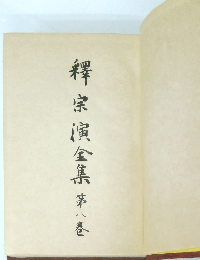 釋宗演全集 第八巻